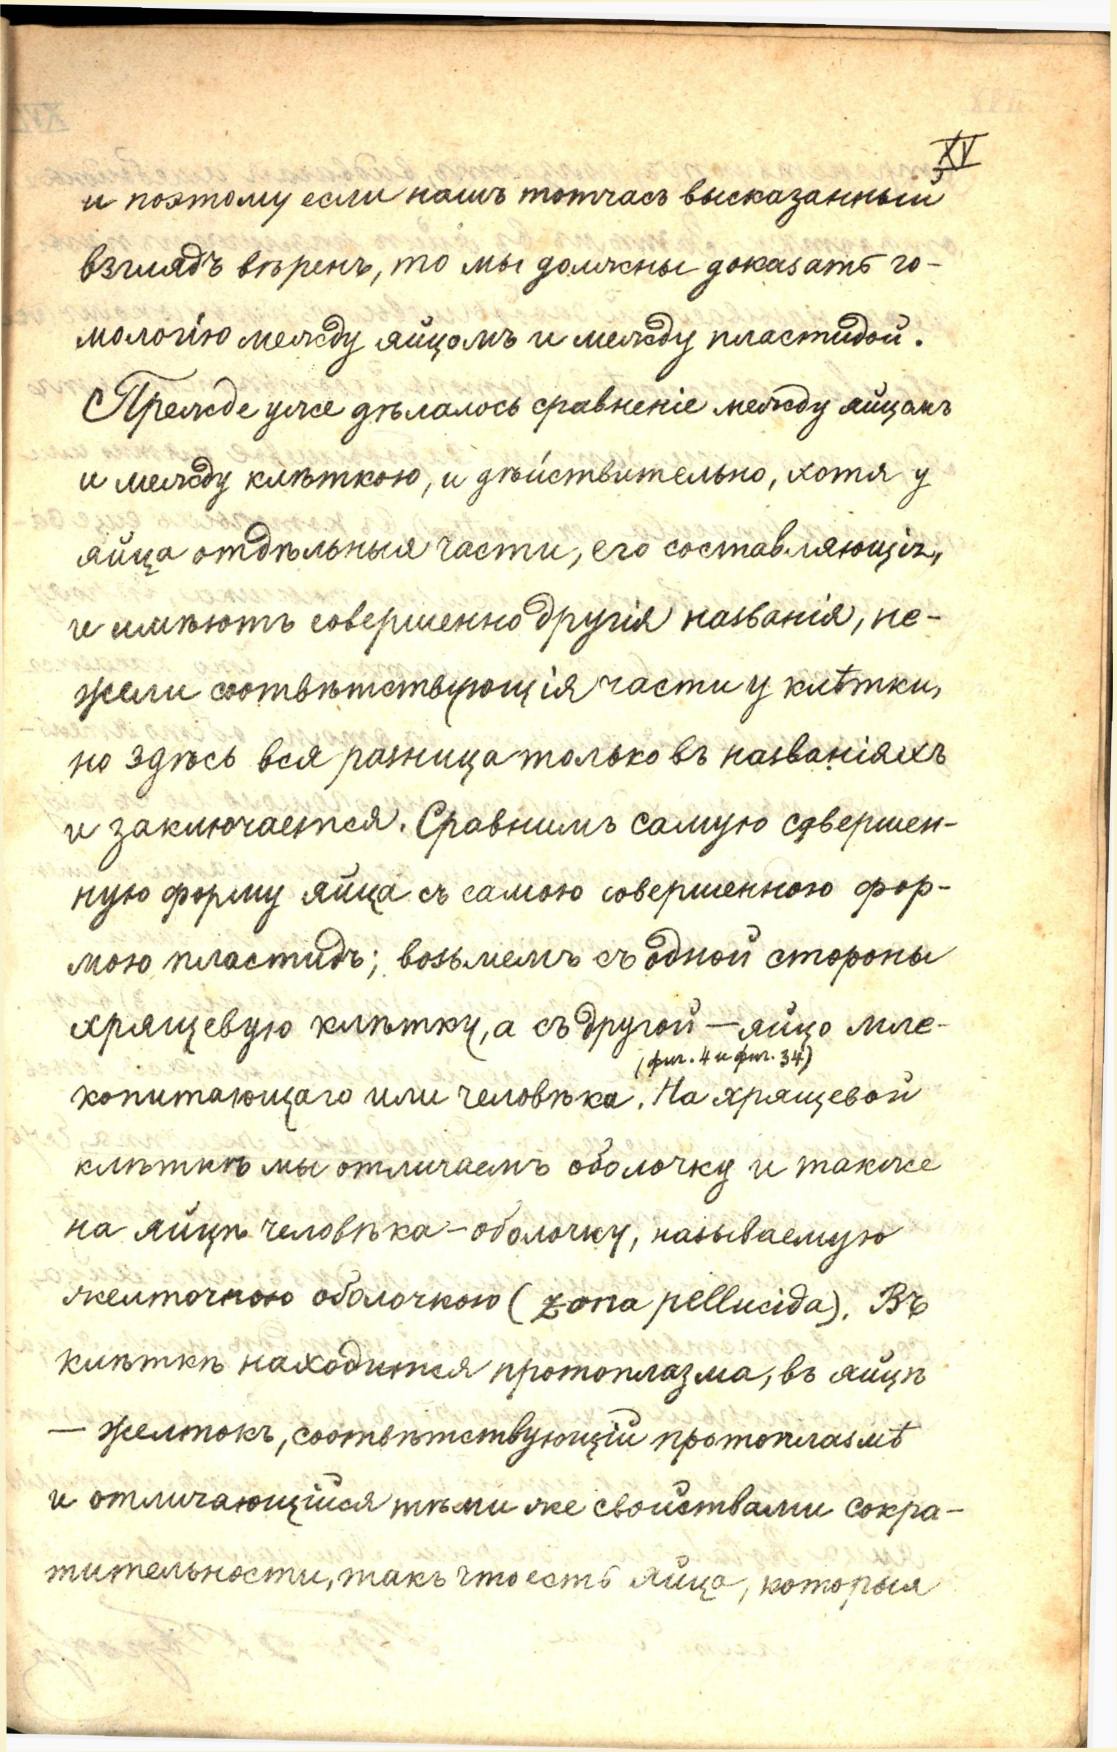 XV
и поэтому если нашъ тотчасъ высказанный
взглядъ вѣренъ, то мы должны доказать го-
мологію между яйцомъ и между пластидой.
Прежде уже дѣлалось сравненіе между яйцомъ
и между клѣткою, и дѣйствительно, хотя у
яйца отдѣльныя части, его составляющія,
и имѣютъ совершенно другія названія, не-
жели соотвѣтствующія части у клѣтки,
но здѣсь вся разница только въ названіяхъ
и заключается. Сравнимъ самую совершен-
ную форму яйца съ самою совершенною фор-
мою пластидъ; возьмемъ съ одной стороны
хрящевую клѣтку, а съ другой — яйцо мле-
(фиг. 4 и фиг. 34)
копитающаго или человѣка. На хрящевой
клѣткѣ мы отличаемъ оболочку и также
на яйцѣ человѣка — оболочку, называемую
желточною оболочкою (zona pellucida). Въ
клѣткѣ находится протоплазма, въ яйцѣ
— желтокъ, соотвѣтствующій протоплазмѣ
и отличающійся тѣми же свойствами сокра-
тительности, такъ что есть яйца, которыя